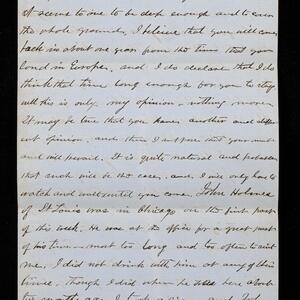 It seems to me to be deep enough and to cover
the whole grounds, I believe that you will come
back in about one year from the time that you
land in Europe. and I do declare that I do
think that time long enough for you to stay
well this is only my opinion - nothing more
It may be true that you have another and differ
ent opinion. and then I suppose that your must
and will prevail. It is quite natural and probable
that such will be the case. and I will only have to
watch and wait until you come. John Holmes
of St Louis was in Chicago on the first part
of this week. He was at the office for a great part
of his time - most too long and too often to suit
me, I did not drink with him at any
time. Though I did when he was here about